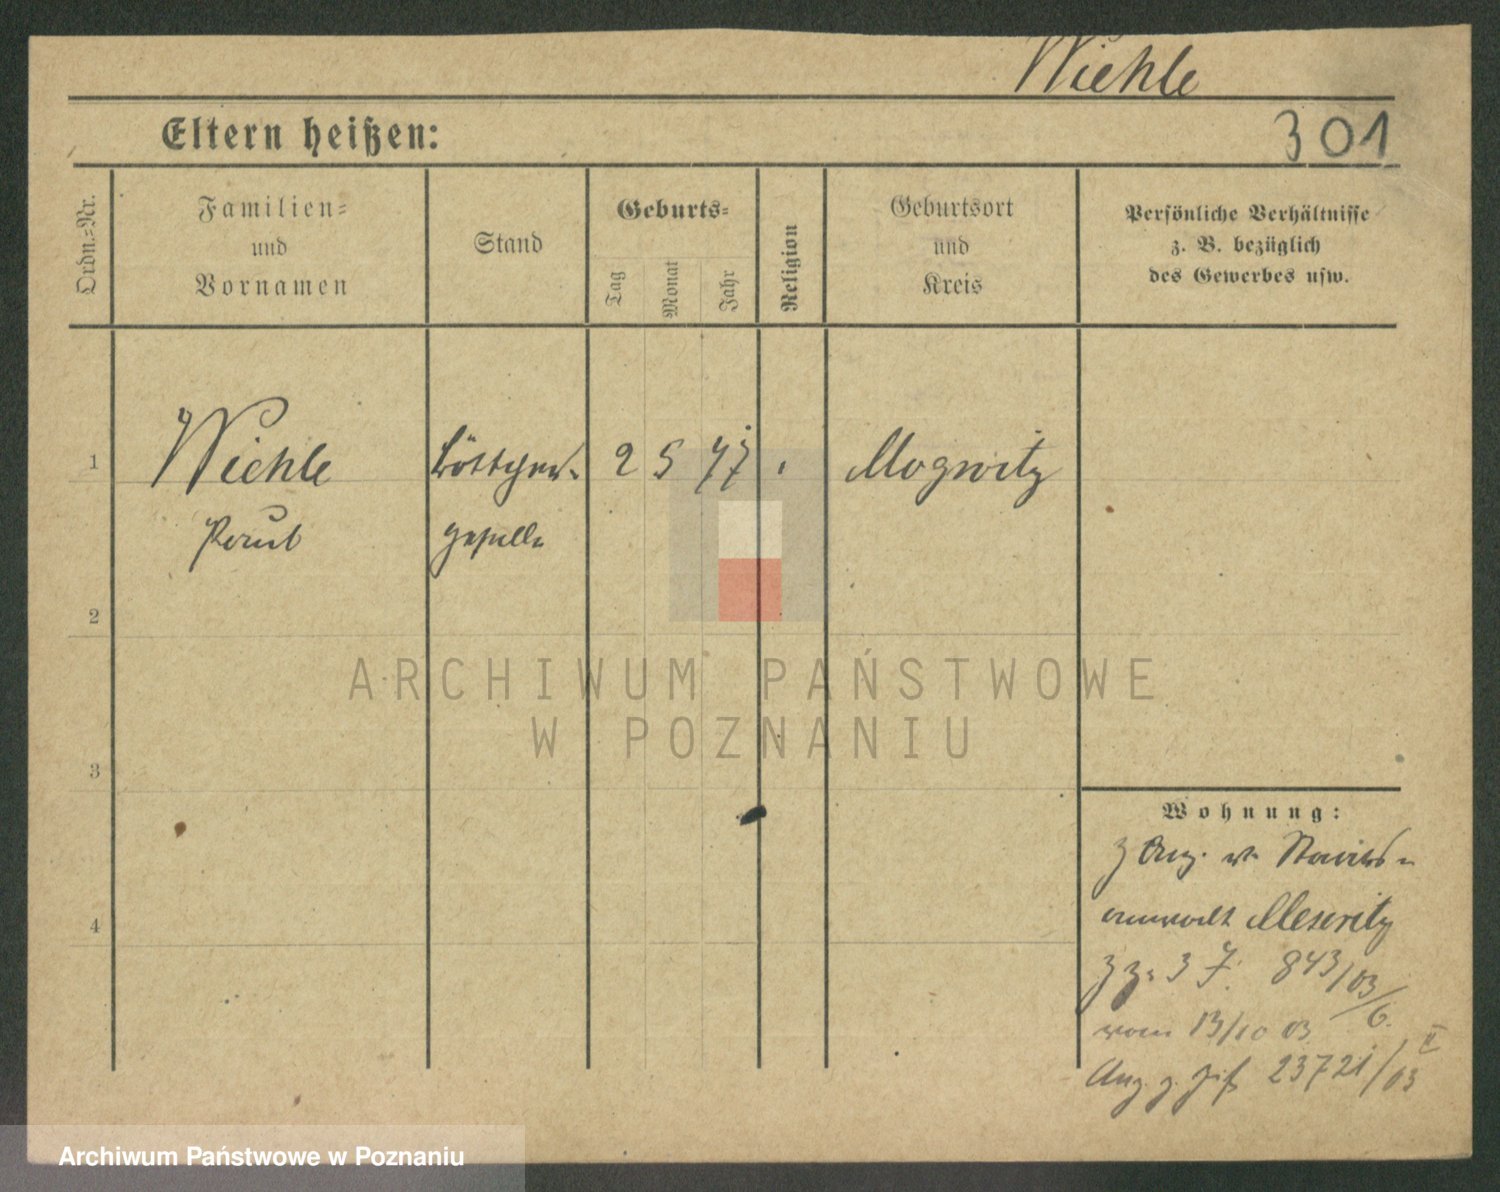 Wiehle
Eltern heißen:
301
Ordn.-Nr.
Familien-
und
Vornamen
Stand
Geburts-
Tag
Monat
Jahr
Religion
Geburtsort
und
Kreis
Persönliche Verhältnisse
z. B. bezüglich
des Gewerbes usw.
1
Wiehle
Paul
Böttcher-
geselle
2 5 77
Mogwitz
2
3
4
Wohnung:
Staats-
anwalt Meseritz
3 J. 843/03
6.
vom 13/10 03
II
23721/03
ARCHIWUM PAŃSTWOWE
W POZNANIU
Archiwum Państwowe w Poznaniu